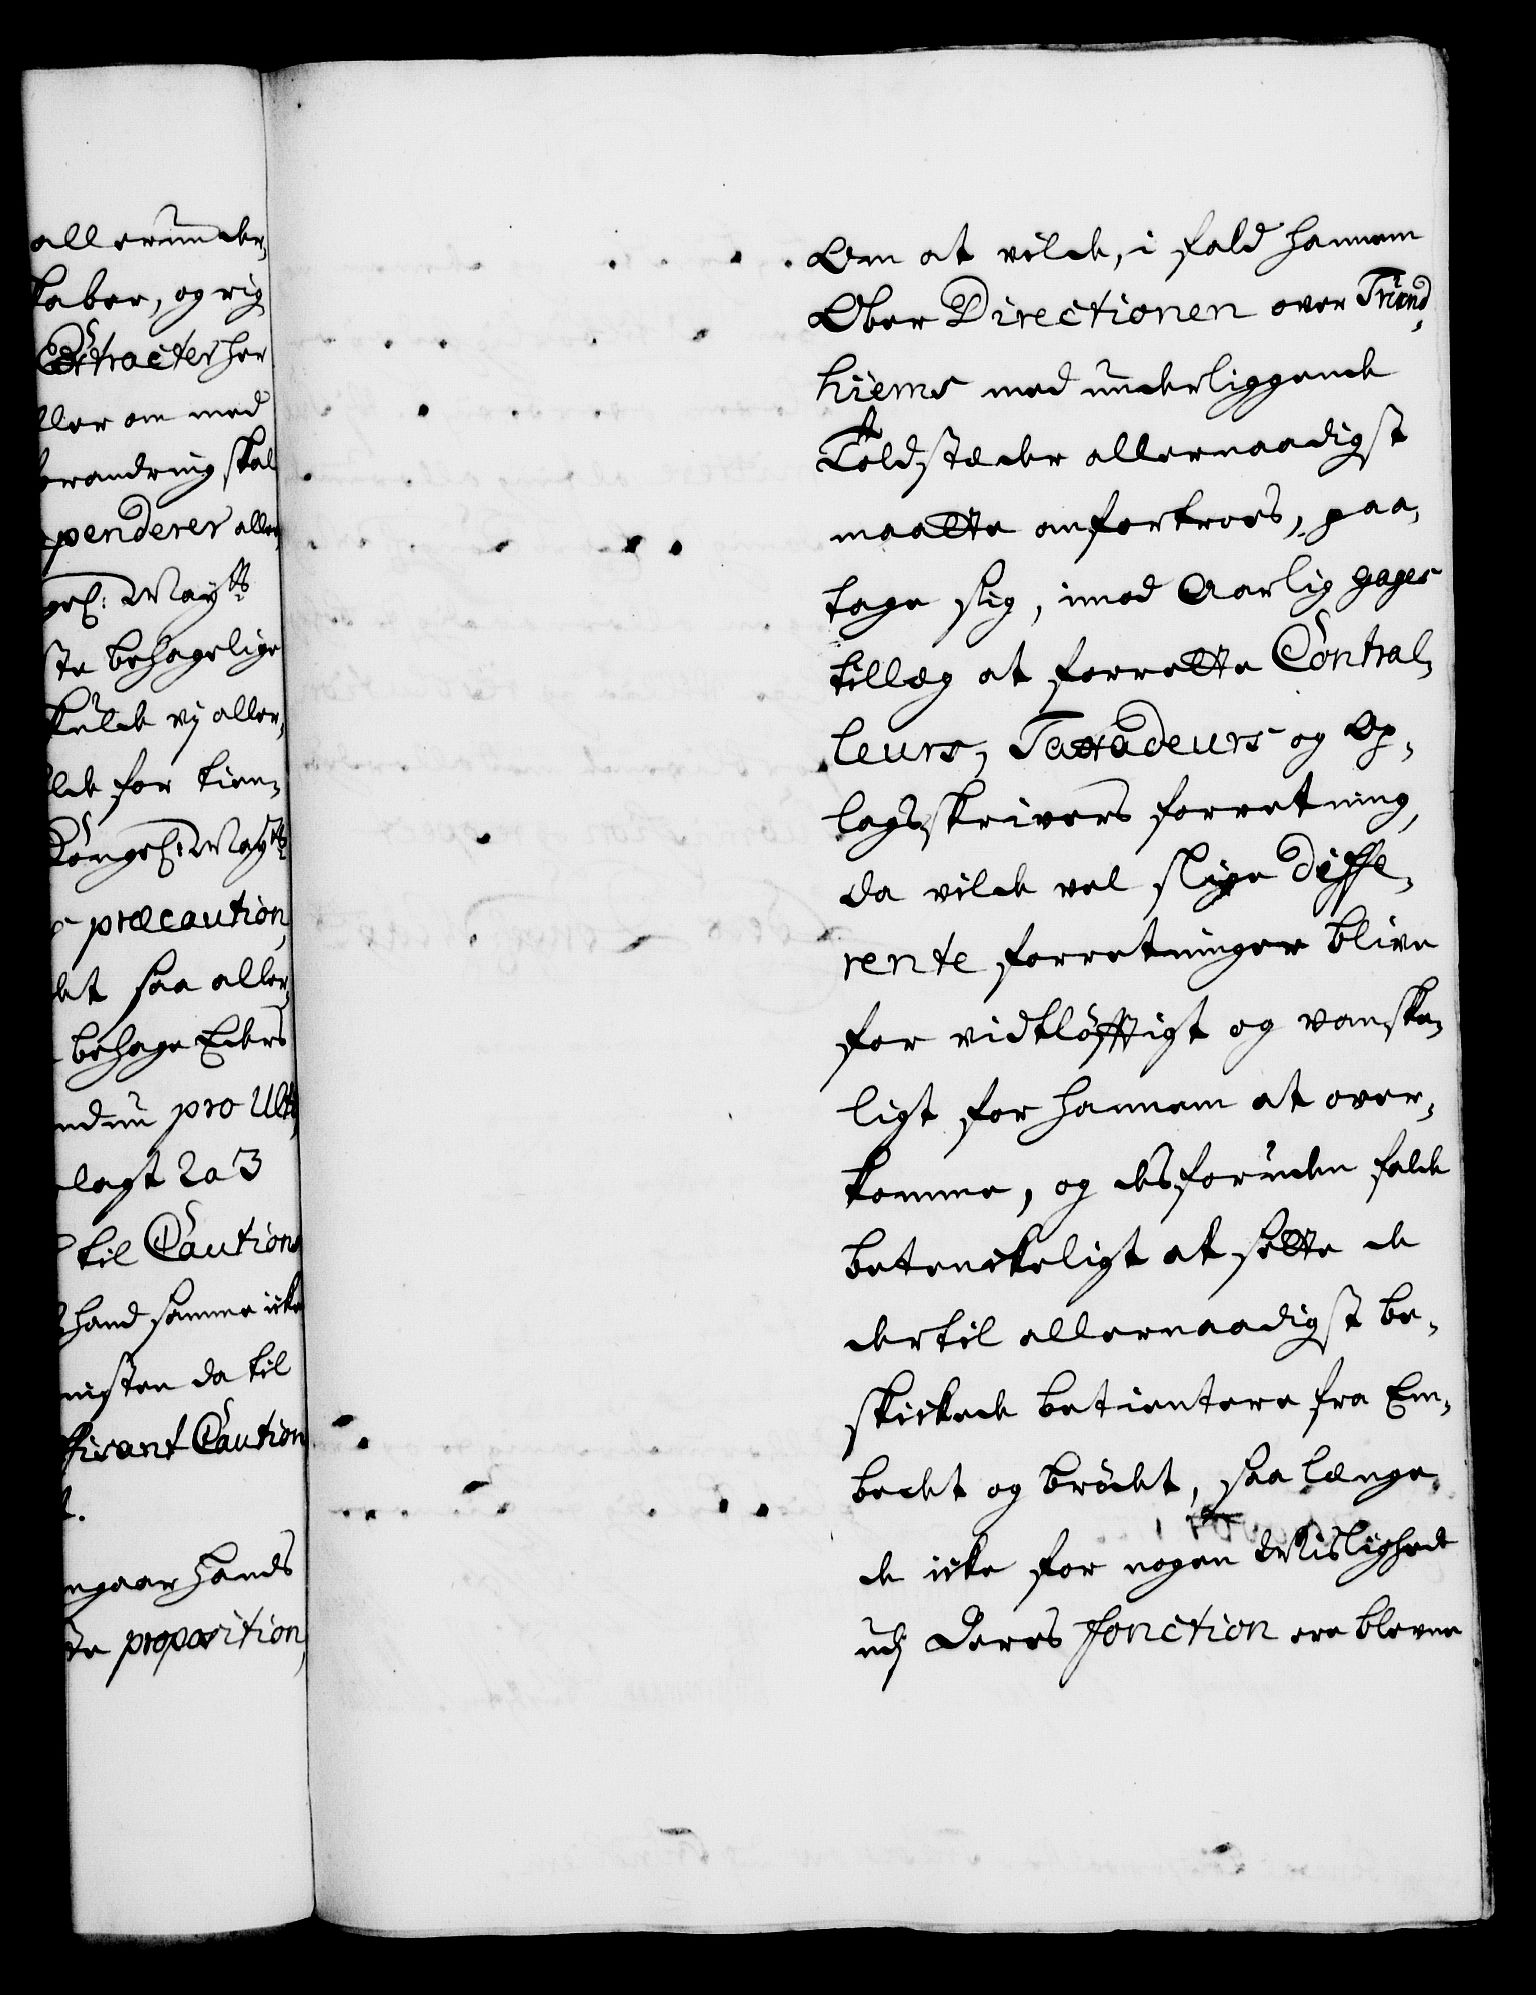 allerunder¬
kaber, og rig
Extracter her
ller om med
forandring skal
penderer aller
gel: Maytt
ste behagelige
kulde vj aller¬
lde for tien¬
Kongel: Maytt
præcaution,
det saa aller¬
behage Eders
pro Ult
lagt 2 a 3
til Cautions
hand samme icke
nisten da til
ficant Caution
t.
ngaar hands
te proposition,
Om at vilde, i fald hannem
Ober Directionen over Trund¬
hiems med underliggende
Toldstæder allernaadigst
maatte anfortroes, paa¬
tage sig, imod Aarlig gages
tillæg at forrette Contral¬
leurs, Taxadeurs og Op¬
lagsskrivers forretning,
da vilde vel slige diffe¬
rente forretninger blive
for vidtløfftigt og vanske¬
ligt for hannem at over¬
komme, og desforuden falde
betenckeligt at sette de
dertil allernaadigst be¬
skickede betientere fra Em¬
bedet og brødet, saa længe
de icke for nogen Mislighed
udj Deres fonction ere blevne